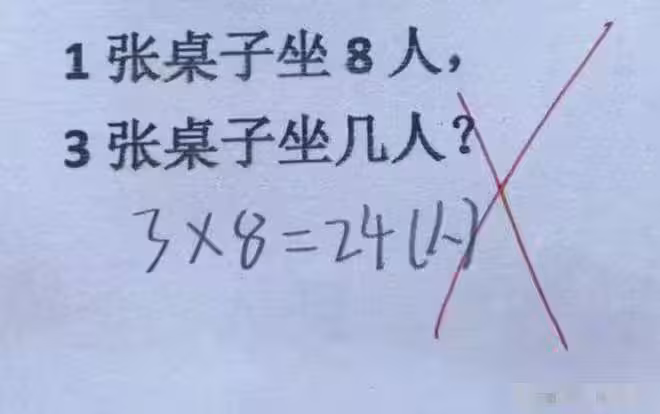 1张桌子坐8人，
3张桌子坐几人？
3×8=24(人)